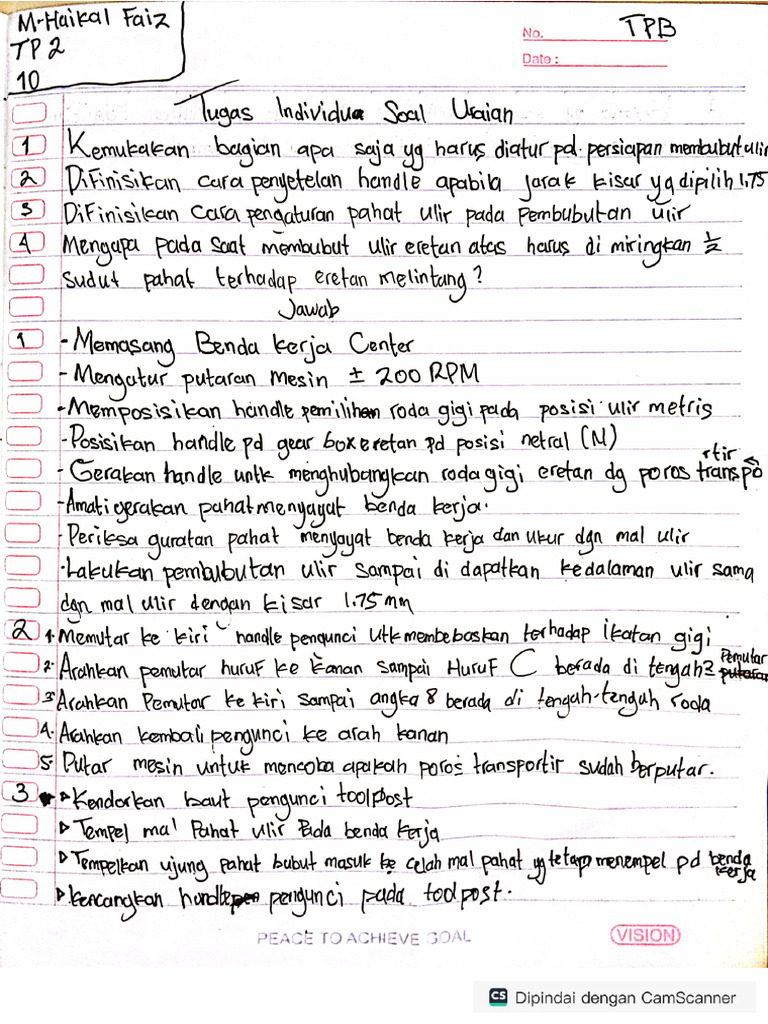 M-Haikal Faiz
TP 2
10
No.
TPB
Date :
Tugas Individua Soal Uraian
1 Kemukakan bagian apa saja yg harus diatur pd. persiapan membubut ulir
2 Difinisikan cara penyetelan handle apabila jarak kisar yg dipilih 1,75
3 Difinisikan cara pengaturan pahat ulir pada pembubutan ulir
4 Mengapa pada saat membubut ulir eretan atas harus di miringkan 1/2
sudut pahat terhadap eretan melintang?
Jawab
1 - Memasang Benda kerja Center
- Mengatur putaran mesin ± 200 RPM
- Memposisikan handle pemilihan roda gigi pada posisi ulir metris
- Posisikan handle pd gear box eretan pd posisi netral (N)
- Gerakan handle untk menghubangkan roda gigi eretan dg poros transportir
- Amati gerakan pahat menyayat benda kerja.
- Periksa guratan pahat menyayat benda kerja dan ukur dgn mal ulir
- Lakukan pembubutan ulir sampai di dapatkan kedalaman ulir sama
dgn mal ulir dengan kisar 1.75 mm
2 1. Memutar ke kiri handle pengunci utk membebaskan terhadap ikatan gigi
2. Arahkan pemutar huruf ke kanan sampai Huruf C berada di tengah2 Pemutar
3. Arahkan Pemutar ke kiri sampai angka 8 berada di tengah-tengah roda
4. Arahkan kembali pengunci ke arah kanan
5. Putar mesin untuk mencoba apakah poros transportir sudah berputar.
3 ▷ Kendorkan baut pengunci toolpost
▷ Tempel mal Pahat ulir Pada benda kerja
▷ Tempelkan ujung pahat bubut masuk ke celah mal pahat yg tetap menempel pd benda kerja
▷ Kencangkan handle pengunci pada toolpost.
PEACE TO ACHIEVE GOAL
VISION
CS Dipindai dengan CamScanner